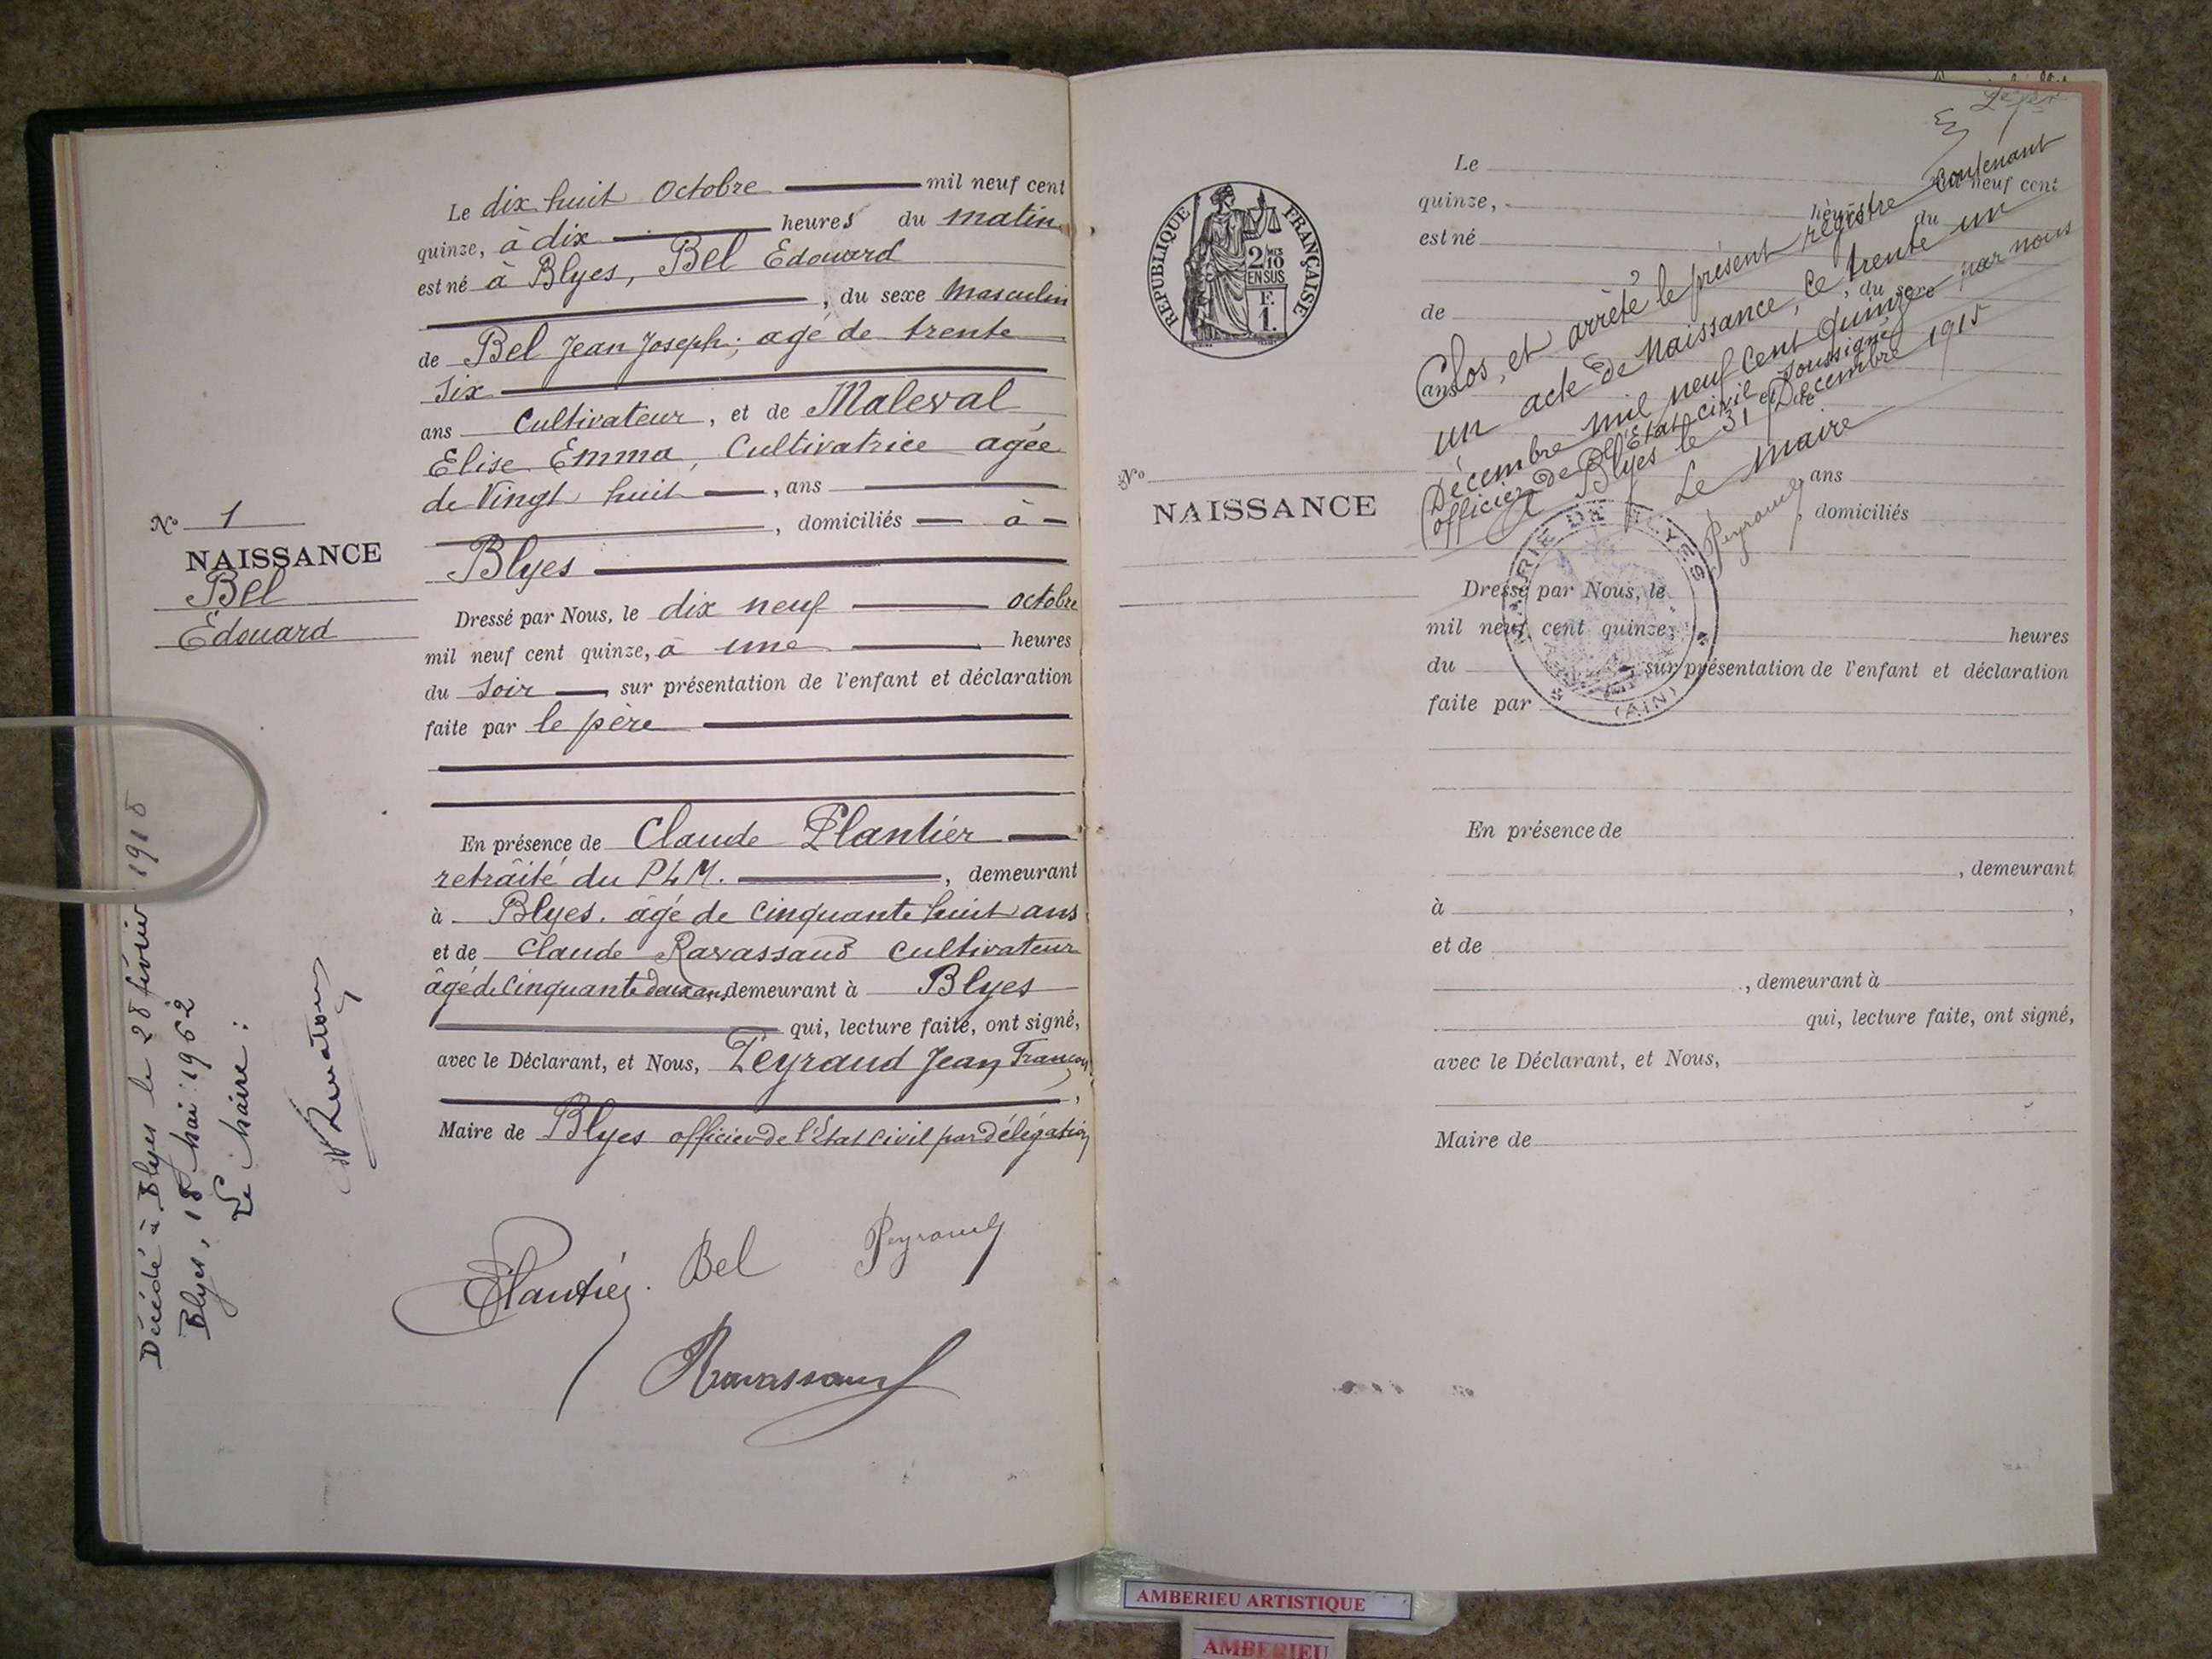 Le dix huit Octobre mil neuf cent
quinze, à dix heures du matin
est né à Blyes, Bel Edouard
, du sexe Masculin
de Bel Jean Joseph, agé de trente
six
ans Cultivateur, et de Maleval
Elise Emma, Cultivatrice agée
de Vingt huit, ans
, domiciliés à
Blyes
Dressé par Nous, le dix neuf octobre
mil neuf cent quinze, à une heures
du soir, sur présentation de l'enfant et déclaration
faite par le père
En présence de Claude Plantier
retraité du PLM., demeurant
à Blyes. âgé de cinquante huit ans
et de Claude Ravassaud cultivateur
âgé de cinquante deux ans, demeurant à Blyes
qui, lecture faite, ont signé,
avec le Déclarant, et Nous, Peyraud Jean François
,
Maire de Blyes officier de l'Etat civil par délégation
Plantier. Bel Peyraud
Ravassaud
No 1
NAISSANCE
Bel
Édouard
Décédé à Blyes le 28 février 1918
Blyes, 18 Mai 1962
Le Maire :
RÉPUBLIQUE FRANÇAISE
2/10
EN SUS
F.
1.
No
NAISSANCE
Le mil neuf cent
quinze, heures du
est né
, du sexe
de
ans et de
, ans
, domiciliés
Clos, et arrêté le présent registre contenant
un acte de Naissance, ce trente un
Décembre mil neuf cent Quinze par nous
officier de l'Etat civil soussigné
Blyes le 31 Décembre 1915
Le Maire
Peyraud
MAIRIE DE BLYES
(AIN)
Dressé par Nous, le
mil neuf cent quinze, heures
du , sur présentation de l'enfant et déclaration
faite par
En présence de
, demeurant
à ,
et de
, demeurant à
qui, lecture faite, ont signé,
avec le Déclarant, et Nous,
Maire de
AMBERIEU ARTISTIQUE
AMBERIEU